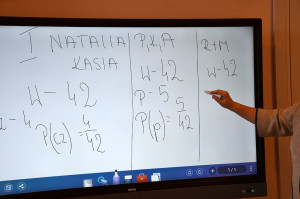 I NATALIA
KASIA
W - 42
- 4
P(cz) = 4/42
P, K, A
W - 42
P - 5
P(p) = 5/42
R + M
W - 42
P -
1/1